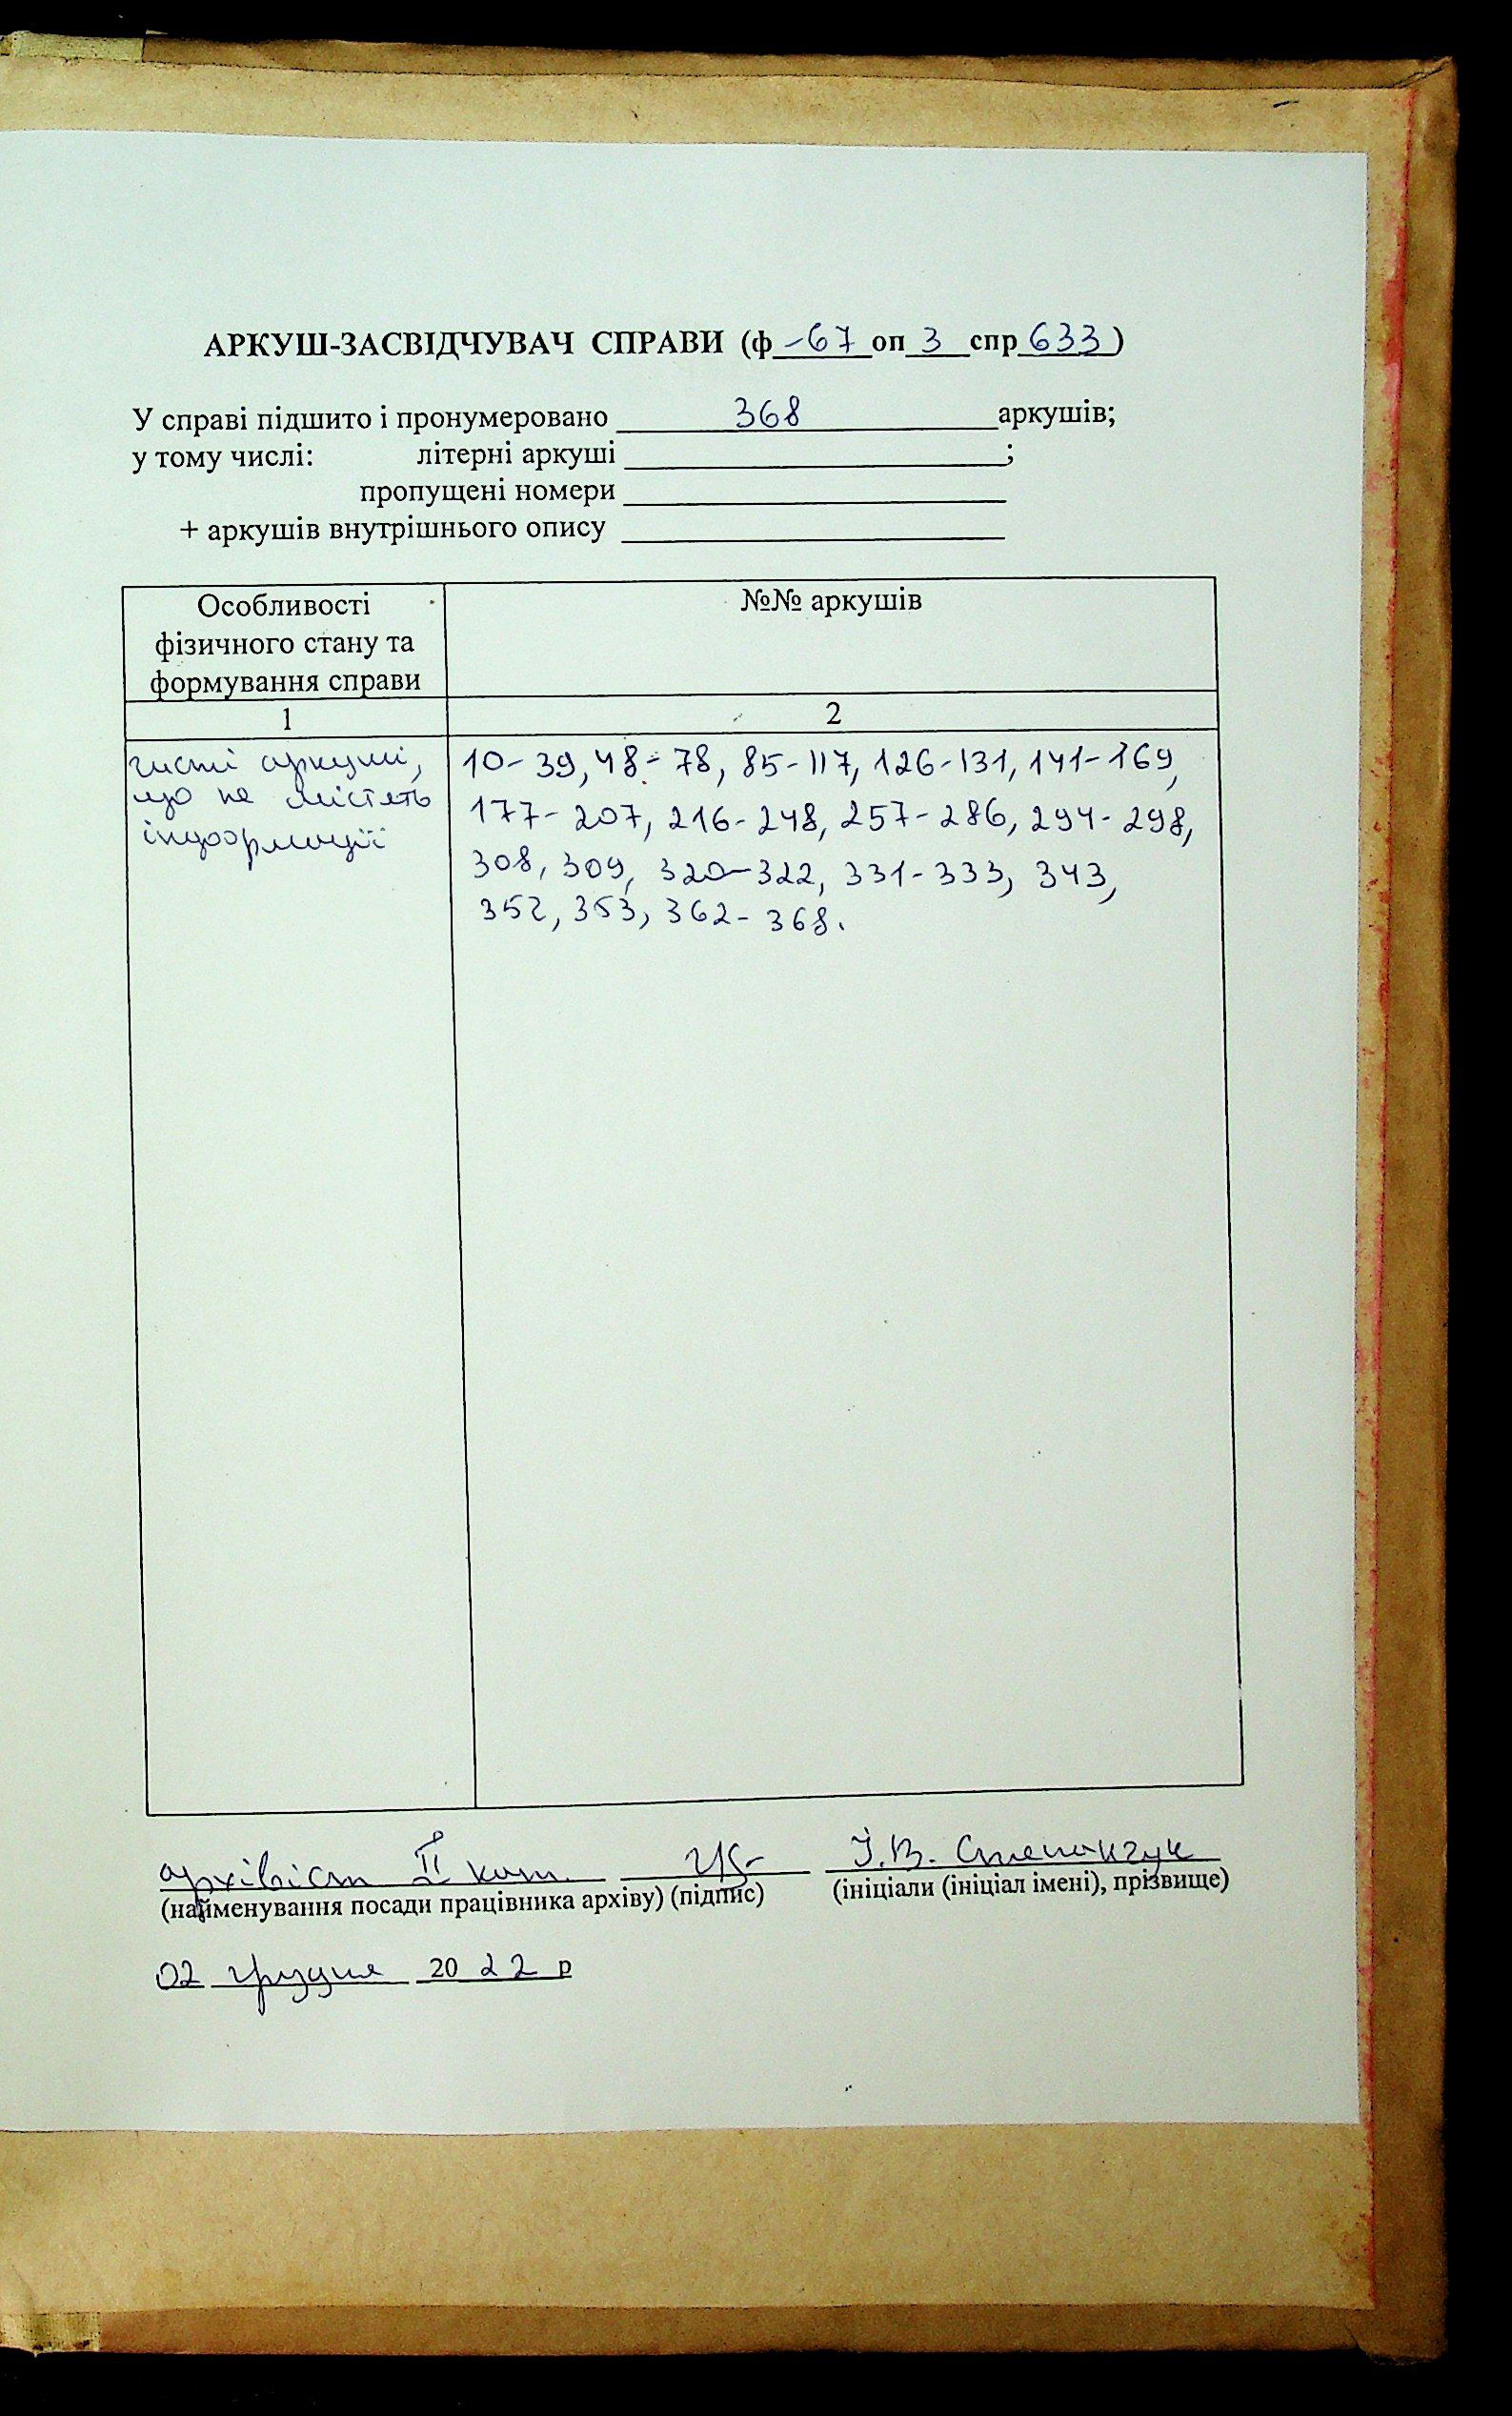 АРКУШ-ЗАСВІДЧУВАЧ СПРАВИ (ф -67 оп 3 спр 633)
У справі підшито і пронумеровано 368 аркушів;
у тому числі: літерні аркуші ;
пропущені номери
+ аркушів внутрішнього опису
Особливості
фізичного стану та
формування справи
№№ аркушів
1
2
чисті аркуші,
що не містять
інформації
10-39, 48-78, 85-117, 126-131, 141-169,
177-207, 216-248, 257-286, 294-298,
308, 309, 320-322, 331-333, 343,
352, 353, 362-368.
архівіст II кат. І.В. Степанчук
(найменування посади працівника архіву) (підпис) (ініціали (ініціал імені), прізвище)
02 грудня 2022 р